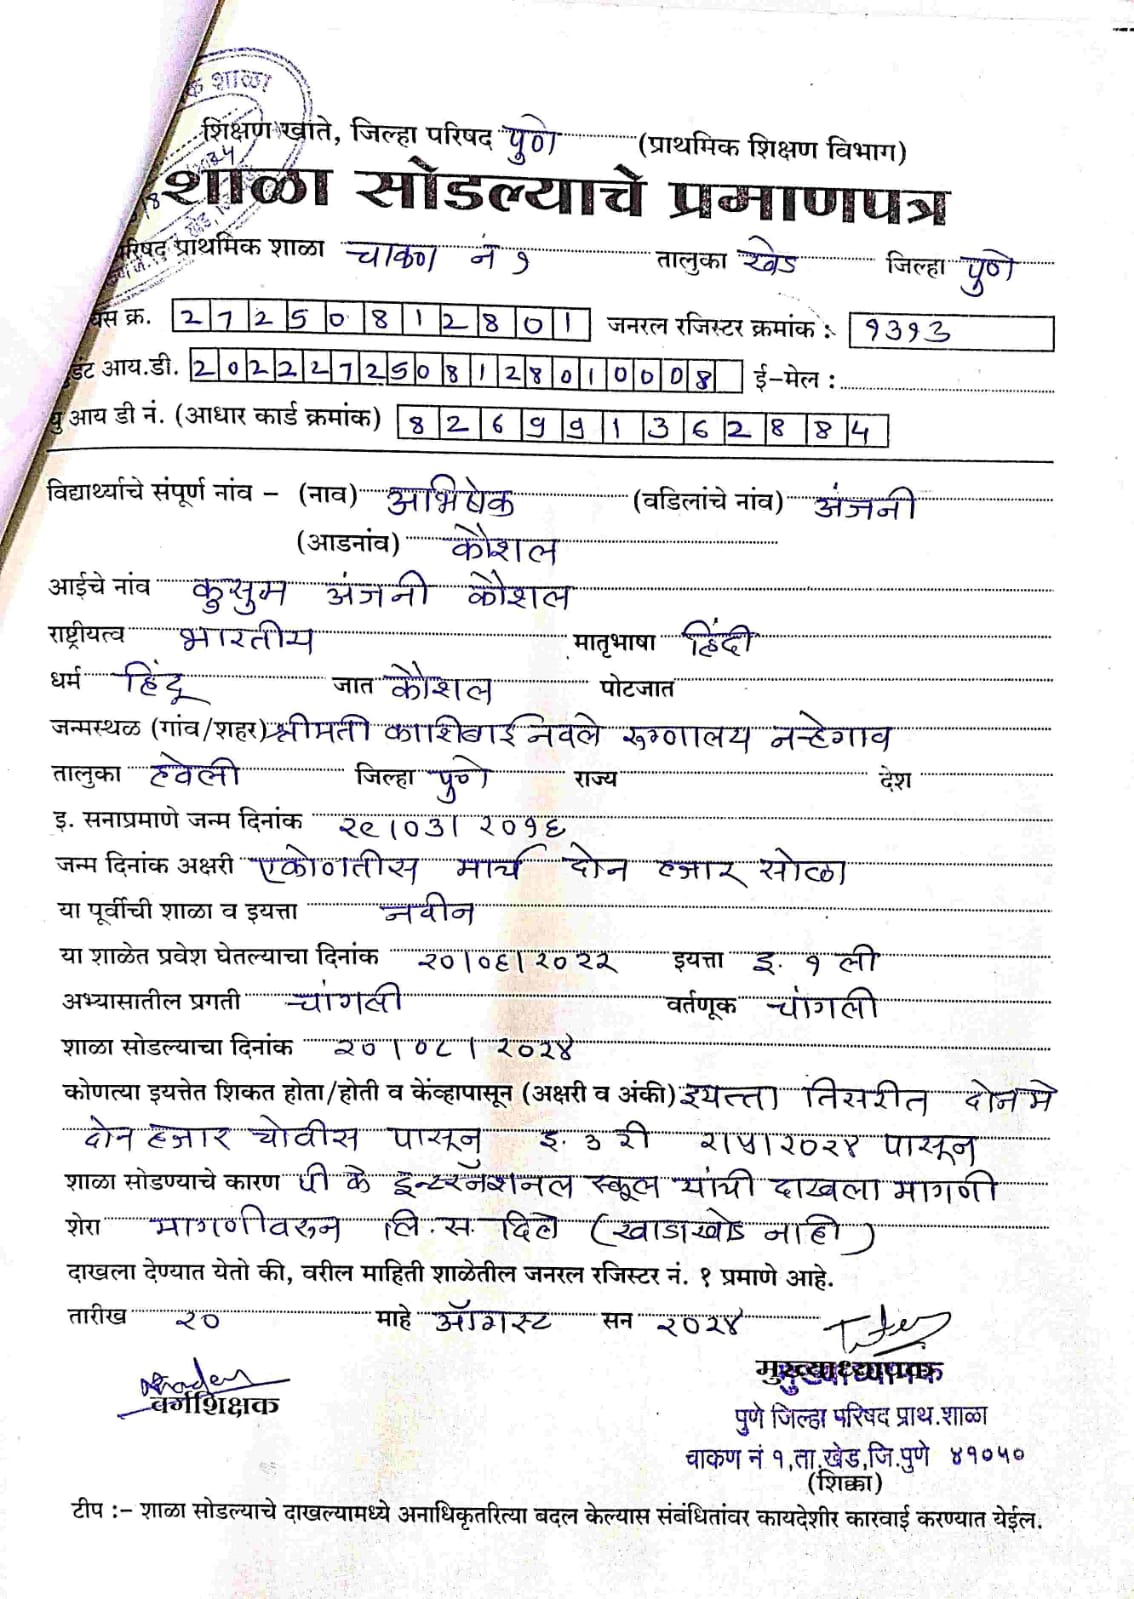 क शाळा
शिक्षण खाते, जिल्हा परिषद पुणे (प्राथमिक शिक्षण विभाग)
शाळा सोडल्याचे प्रमाणपत्र
परिषद प्राथमिक शाळा चाकण नं १ तालुका खेड जिल्हा पुणे
क्र. 27250812801 जनरल रजिस्टर क्रमांक : १३१३
आय.डी. 2022272508128010008 ई-मेल :
यु आय डी नं. (आधार कार्ड क्रमांक) 826991362884
विद्यार्थ्याचे संपूर्ण नांव – (नाव) अभिषेक (वडिलांचे नांव) अंजनी
(आडनांव) कौशल
आईचे नांव कुसुम अंजनी कौशल
राष्ट्रीयत्व भारतीय मातृभाषा हिंदी
धर्म हिंदू जात कौशल पोटजात
जन्मस्थळ (गांव/शहर) श्रीमती काशिबाई नवले रुग्णालय नऱ्हेगाव
तालुका हवेली जिल्हा पुणे राज्य देश
इ. सनाप्रमाणे जन्म दिनांक २९।०३। २०१६
जन्म दिनांक अक्षरी एकोणतीस मार्च दोन हजार सोळा
या पूर्वीची शाळा व इयत्ता नवीन
या शाळेत प्रवेश घेतल्याचा दिनांक २०।०६।२०२२ इयत्ता इ. १ ली
अभ्यासातील प्रगती चांगली वर्तणूक चांगली
शाळा सोडल्याचा दिनांक २०।०८। २०२४
कोणत्या इयत्तेत शिकत होता/होती व केंव्हापासून (अक्षरी व अंकी) इयत्ता तिसरीत दोन मे
दोन हजार चोवीस पासून इ. ३ री २।५।२०२४ पासून
शाळा सोडण्याचे कारण पी के इन्टरनॅशनल स्कूल यांची दाखला मागणी
शेरा मागणीवरुन लि.स. दिले (खाडाखोड नाही)
दाखला देण्यात येतो की, वरील माहिती शाळेतील जनरल रजिस्टर नं. १ प्रमाणे आहे.
तारीख २० माहे ऑगस्ट सन २०२४
मुख्याध्यापक
वर्गशिक्षक
पुणे जिल्हा परिषद प्राथ.शाळा
चाकण नं १,ता.खेड,जि.पुणे ४१०५०
(शिक्का)
टीप :– शाळा सोडल्याचे दाखल्यामध्ये अनाधिकृतरित्या बदल केल्यास संबंधितांवर कायदेशीर कारवाई करण्यात येईल.